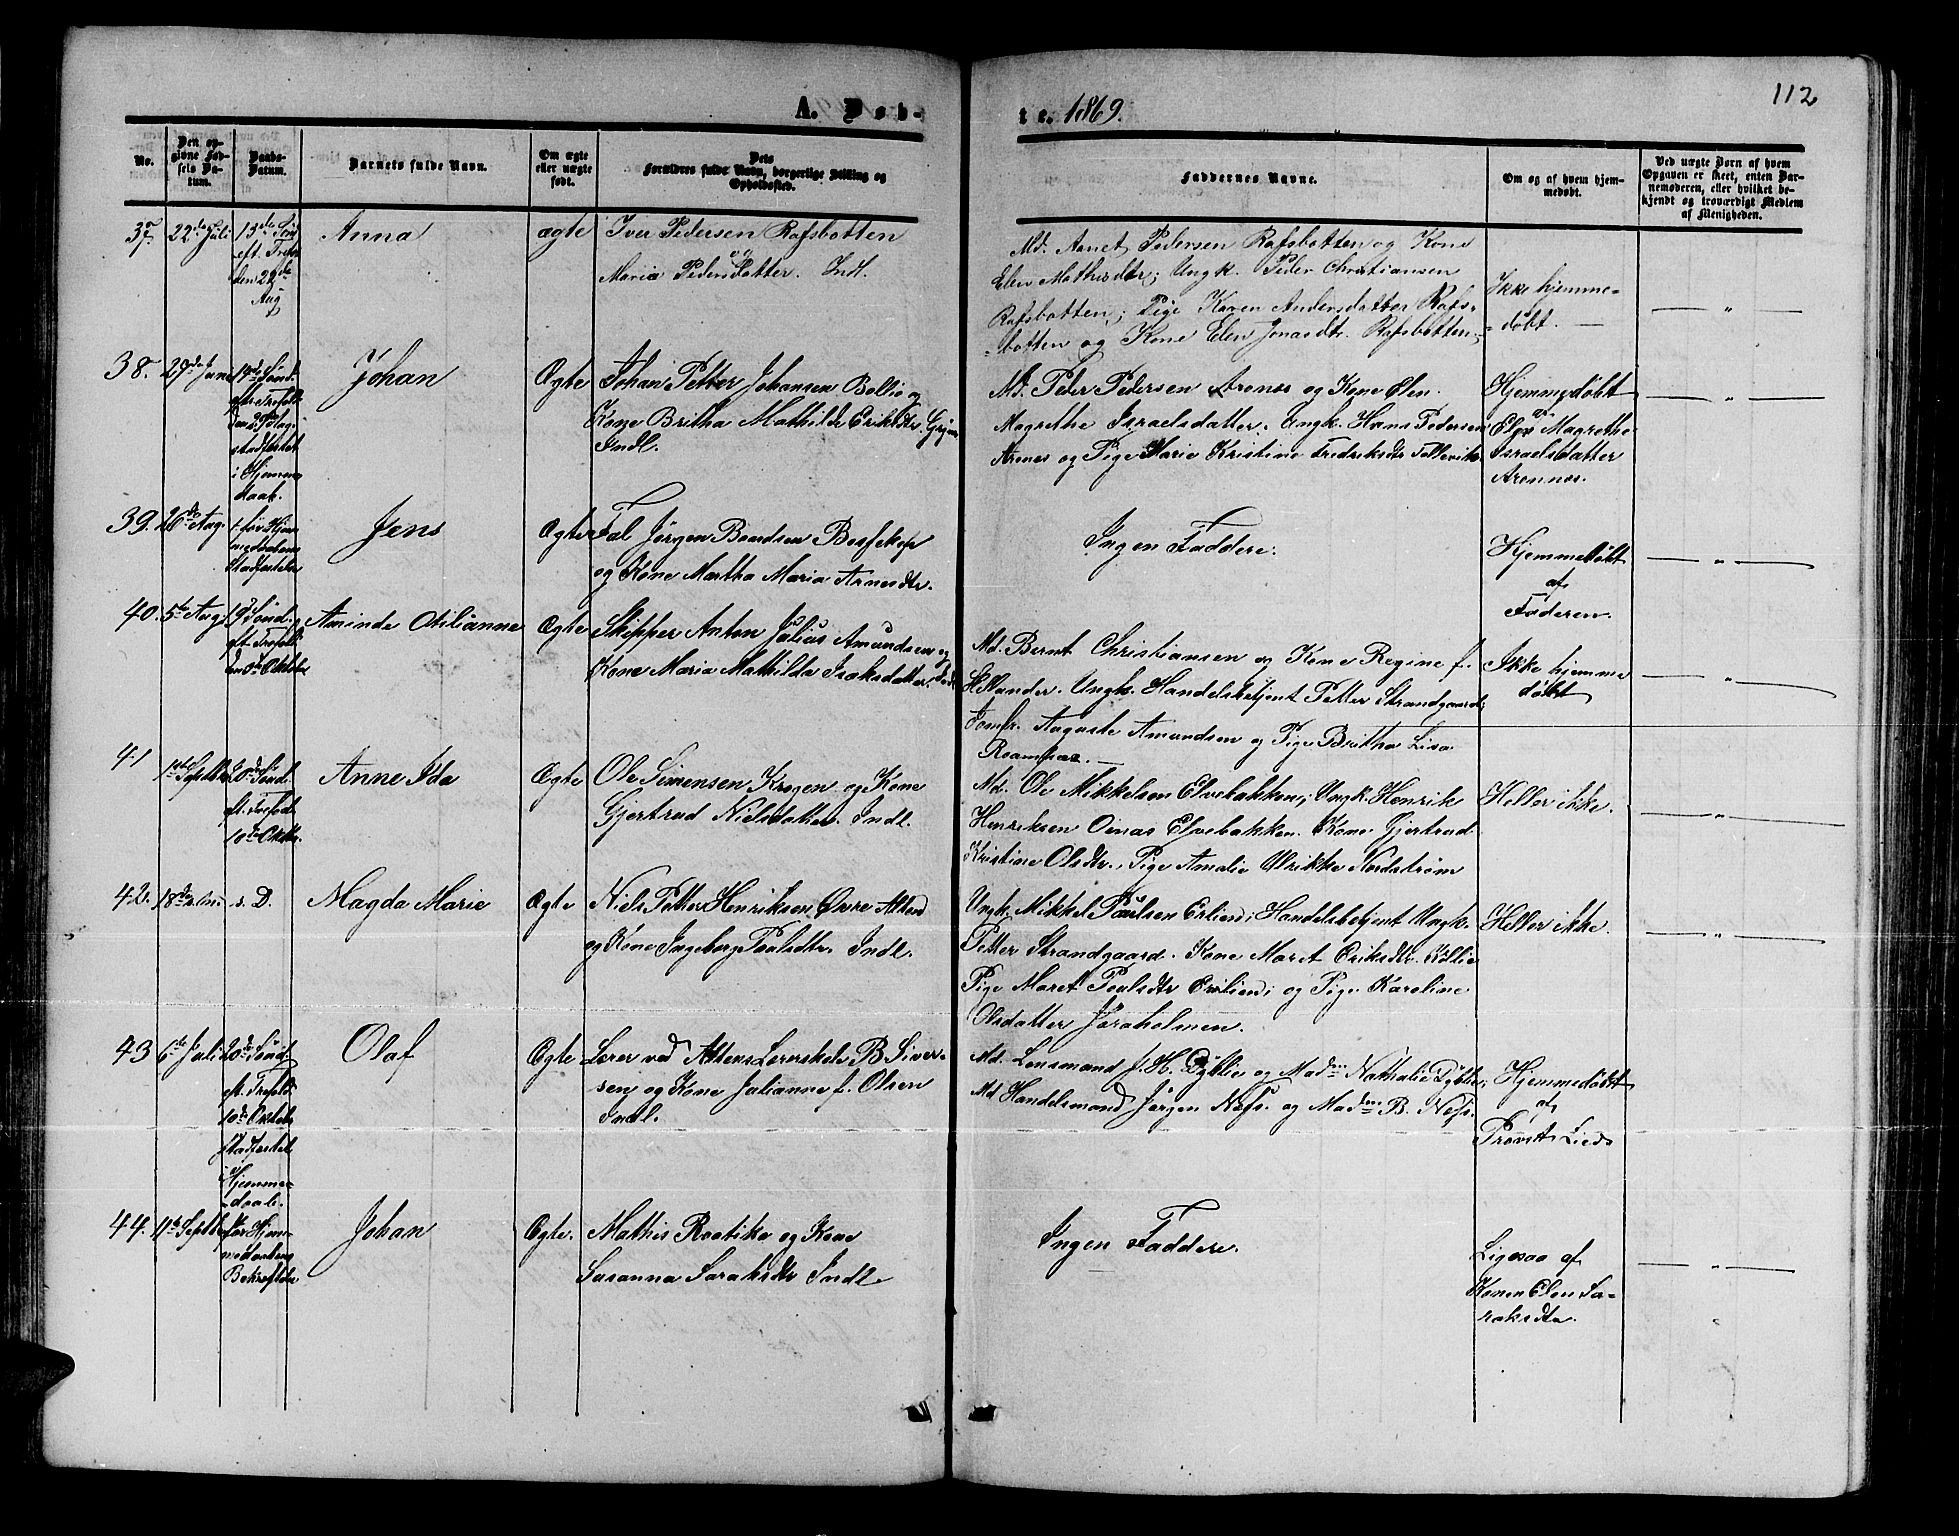 112
A. Døb-
te. 1869.
No.
Den op-
givne Fød-
sels Da-
tum.
Daabs-
Datum.
Barnets fulde Navn.
Om ægte
eller uægte
født.
Dets
Forældres fulde Navn, borgerlige Stilling og
Opholdssted.
Faddernes Navne.
Om og af hvem hjem-
medøbt.
Ved uægte Børn af hvem
Opgaven er skeet, enten Bar-
nemoderen, eller hvilket be-
kjendt og troværdigt Medlem
af Menigheden.
37. 22de Juli
13de Sønd
eft. Tref.
den 22de
Aug
Anna
ægte
Iver Pedersen Rafsbotten
og
Maria Pedersdatter. Indl.
Md. Pedersen Rafsbotten og Kone
Elen Mathisdtr; Ungk. Peder Christiansen
Rafsbotten; Pige Karen Andersdatter Rafs-
-botten og Kone Elen Jonasdtr. Rafsbotten.
Ikke hjemme-
-døbt. —
— " —
38. 29de Juni
19de Sønd.
eftr. Trefold.
stadfæstet
i Hjemme-
daab.
Johan
Ægte
Johan Petter Johansen og
Kone Britha Mathilde Eriksdtr.
Indl.
Md. Peder Pedersen Aronnes og Kone Elen
Magrethe Israelsdatter. Ungk. Hans Pedersen
Aronnes og Pige Marie Kristine Fredriksdtr Tollevik.
Hjemmedøbt
af
Elen Magrethe
Israelsdatter
Aronnes.
— " —
39. 26de Aug.
Jens
Ægte
Jørgen Bossekop
og Kone Martha Maria Arnesdtr.
Ingen Faddere.
Hjemmedøbt
af
Faderen.
— " —
40. 5te Aug.
19de Sønd.
eft. Trefold.
den 3de Oktbr
Aminde Otilianne
Ægte
Skipper Anton Julius Amundsen og
Kone Maria Mathilda Isaksdatter. Indl.
Md. Bernt Christiansen og Kone Regine f.
Ungk. Handelsbetjent Petter Strandgaard;
Jomfr. Auguste Amundsen og Pige Britha Lisa
Ikke hjemme
døbt
— " —
41
1ste Septbr
20de Sønd.
eft. Trefold.
10de Oktbr.
Anne Ida
Ægte
Ole Simensen Krogen og Kone
Gjertrud Nielsdatter. Indl.
Md. Ole Mikkelsen Elvebakken; Ungk. Henrik
Henriksen Oinas Elvebakken. Kone Gjertrud
Kristine Olsdtr., Pige Amalie Ulrikke Nordstrøm
Heller ikke.
— " —
42. 18de
s. D.
Magda Marie
Ægte
Niels Petter Henriksen Øvre Alten
og Kone Ingeborg Poulsdtr. Indl.
Ungk. Mikkel Poulsen Erlien; Handelsbetjent Ungk.
Petter Strandgaard. Kone Maret Eriksdtr.
Pige Maret Poulsdtr Erlien; og Pige Karoline
Olsdatter Jøraholmen.
Heller ikke.
— " —
43 6te Juli
20de Sønd.
eft. Trefold.
10de Oktbr
stadfæstet
i Hjemme-
-daab.
Olaf
Ægte
Lærer ved Altens Lærerskole B. Siver-
sen og Kone Julianne f. Olsen
Indl.
Md. Lensmand J. H. Dyblie og Madm Nathalie Dyblie;
Md Handelsmand Jørgen Nefs. og Madm B. Nefs.
Hjemmedøbt
af
Provst
44. 11te Septbr
Hjem-
medaaben
Bekræftelse
Johan
Ægte.
Mathis Raatika og Kone
Susanna Saraksdtr Indl
Ingen Faddere.
Ligesaa af
Konen Elen Sa-
raksdtr.
— " —